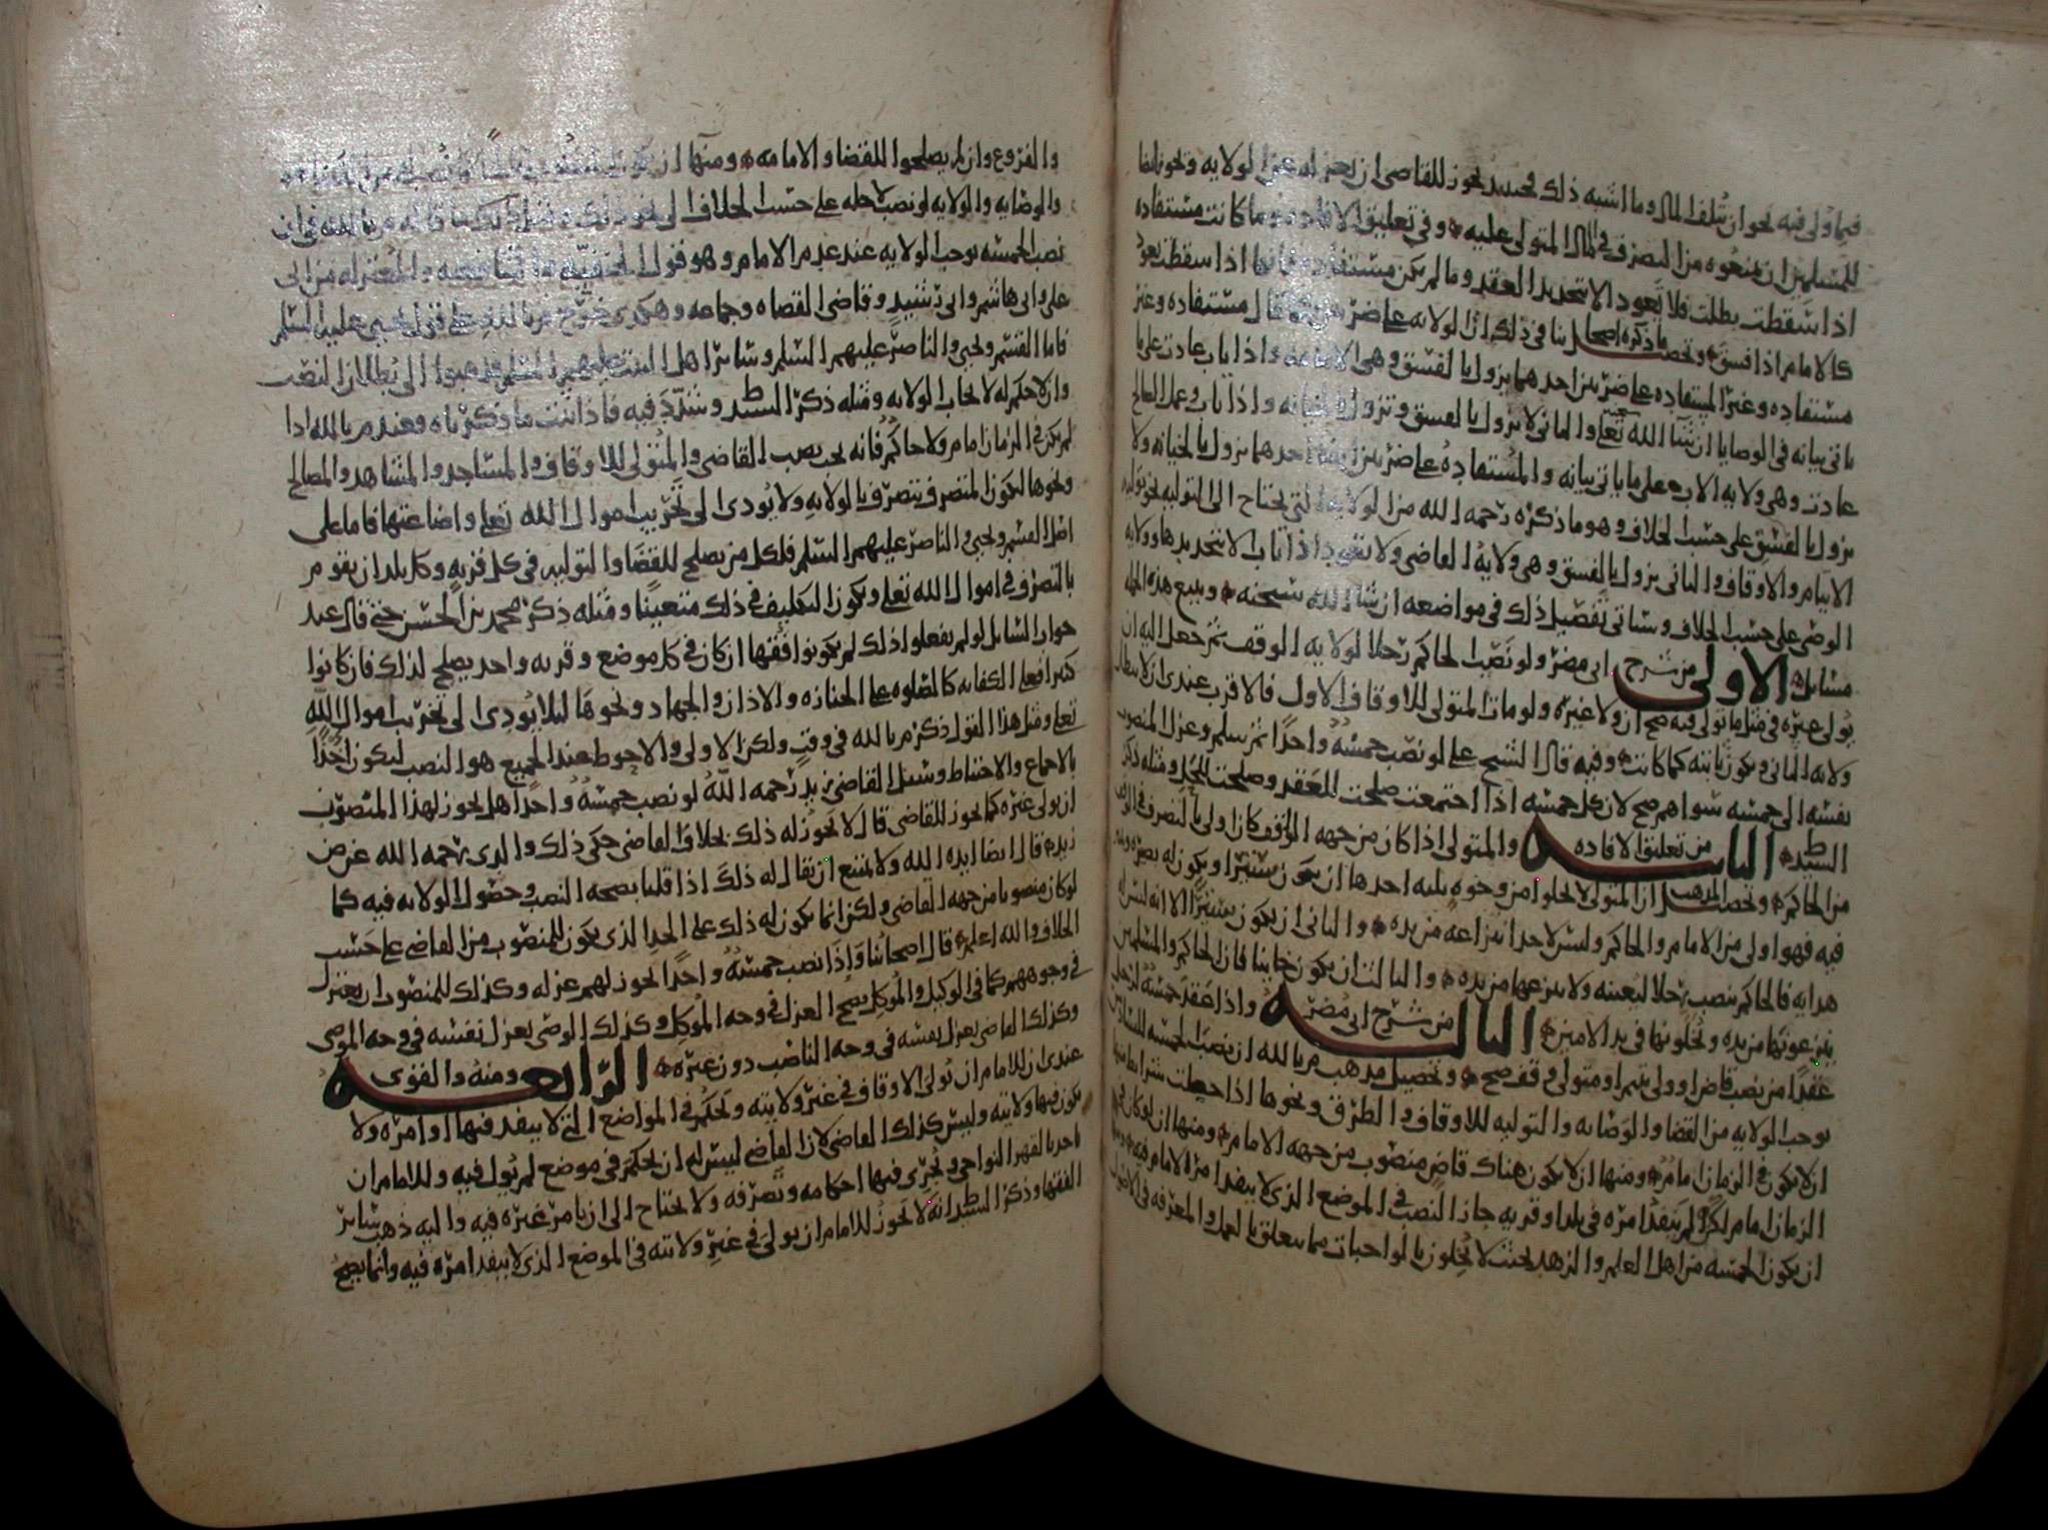 فيما ولي فيه نحو ان يتلف المال وما اشبه ذلك فحينئذ يجوز للقاضي ان يعزله عن الولايه ويجوز ايضا
للمسلمين ان يمنعوه من التصرف في المال المتولى عليه وفي تعليق الافاده وما كانت مستفاده
اذا سقطت بطلت فلا تعود الا بتجديد العقد وما لم يكن مستفاده فانها اذا سقطت تعود
كالامام اذا فسق وتحصيل ما ذكره اصحابنا في ذلك ان الولايه على ضربين مستفاده وغير
مستفاده وغير المستفاده على ضربين احدهما يزول بالفسق وهي الامامه واذا تاب عادت على ما
ياتي بيانه في الوصايا ان شا الله تعلى والثاني لا يزول بالفسق وتزول بالخيانه واذا تاب وعمل الصالح
عادت وهي ولايه الاب على ما ياتي بيانه والمستفاده على ضربين ايضا احدهما يزول بالخيانه ولا
يزول بالفسق على حسب الخلاف وهو ما ذكره رحمه الله من الولايه التي يحتاج الى التوليه نحو توليه
الايتام والاوقاف والثاني يزول بالفسق وهي ولايه القاضي ولا تعود اذا تاب الا بتجديدها وولايه
الوصي على حسب الخلاف وسياتي تفصيل ذلك في مواضعه ان شا الله سبحنه ويتبع هذه الجمله
مسايل الاولى من شرح ابي مضر ولو نصب الحاكم رجلا لولايه الوقف ثم جعل اليه ان
يولى غيره في مثل ما تولى فيه صح ان ولا غيره ولو مات المتولي للاوقاف الاول فالاقرب عندي ان لا تبطل
ولايه الثاني ويكون ثابته كما كانت وفيه قال الشيخ علي لو نصب خمسه واحدا ثم سلم وعزل المنصوب
نفسه الى خمسه سواهم صح لان كل خمسه اذا اجتمعت صلحت للعقد وصلحت للحل ومثله ذكر
السيد ط الثانيه من تعليق الافاده والمتولي اذا كان من جهه الواقف كان اولى بالتصرف في الوقف
من الحاكم وتحصيل المذهب ان المتولي لا يخلوا من وجوه ثلثه احدها ان يكون ستيرا ويكون له بصيره
فيه فهو اولى من الامام والحاكم وليس لاحد انتزاعه من يده والثاني ان يكون ستيرا الا انه ليس له
هدايه فالحاكم ينصب رجلا ليعينه ولا ينزعها من يده والثالث ان يكون خاينا فان الحاكم والمسلمين
ينزعونها من يده ويجعلونها في يد الامين الثالثه من شرح ابي مضر واذا عقد خمسه لرجل
عقدا من نصب قاض او ولي يتيم او متولي وقف صح وتحصيل مذهب م بالله ان نصب الخمسه للقضا
يوجب الولايه من القضا والوصايه والتوليه للاوقاف والطرق ونحوها اذا حصلت شرايط منها
ان لا يكون في الزمان امام ومنها ان لا يكون هناك قاض منصوب من جهه الامام ومنها ان لو كان في
الزمان امام لكن لم ينفذ امره في بلد او قريه جاز النصب في الموضع الذي لا ينفذ امر الامام فيه ومنها
ان يكون الخمسه من اهل العلم والزهد بحيث لا يخلون بالواجبات مما يتعلق بالعمل والمعرفه في الاصول
والفروع وان لم يصلحوا للقضا والامامه ومنها ان
والوصايه والولايه لو نصب لاجله على حسب الخلاف الذي
نصب الخمسه يوجب الولايه عند عدم الامام وهو قول الحنفيه
علي وابي هاشم وابي رشيد وقاضي القضاه وجماعه وهكذا خرج م بالله على قول يحيى عليه السلم
فاما القسم ويحيى والناصر عليهم السلم وساير اهل البيت عليهم السلم فذهبوا الى بطلان النصب
وان لا حكم له لايجاب الولايه ومثله ذكر السيد ط وشدد فيه فاذا ثبت ما ذكرناه وعند م بالله اذا
لم يكن في الزمان امام ولا حاكم فانه يجب نصب القاضي والمتولي للاوقاف والمساجد والمشاهد والمصالح
ونحوها ليكون المتصرف يتصرف بالولايه ولا يودي الى تخريب اموال الله تعلى واضاعتها فاما على
اصل القسم ويحيى والناصر عليهم السلم فلكل من يصلح للقضا والتوليه في كل قريه وكل بلد ان يقوم
بالتصرف في اموال الله تعلى ويكون التكليف في ذلك متعينا ومثله ذكر محمد بن الحسن حتى قال عند
جواب السايل لو لم يفعلوا ذلك لم يكونوا فقها ان كان في كل موضع وقريه واحد يصلح لذلك فان كانوا
كثيرا فعلى الكفايه كالصلوه على الجنازه والاذان والجهاد ونحوها ليلا يودي الى تخريب اموال الله
تعلى ومثل هذا القول ذكر م بالله في وقت ولكن الاولى والاحوط عند الجميع هو النصب ليكون اخذا
بالاجماع والاحتياط وسئل القاضي زيد رحمه الله لو نصب خمسه واحدا هل يجوز لهذا المنصوب
ان يولي غيره كما يجوز للقاضي قال لا يجوز له ذلك بخلاف القاضي حكى ذلك والدي رحمه الله عن ض
زيد قال ايضا ايده الله ولا يمتنع ان يقال له ذلك اذا قلنا بصحه النصب وحصول الولايه فيه كما
لو كان منصوبا من جهه القاضي ولكن انما يكون له ذلك على الحد الذي يكون للمنصوب من القاضي على حسب
الخلاف والله اعلم قال اصحابنا واذا نصب خمسه واحدا يجوز لهم عزله وكذلك للمنصوب ان يعتزل
في وجوههم كما في الوكيل والموكل يصح العزل في وجه الموكل وكذلك الوصي يعزل نفسه في وجه الموصي
وكذلك القاضي يعزل نفسه في وجه الناصب دون غيره الرابعه ومنه والقوي
عندي ان للامام ان يولي الاوقاف في غير ولايته ويحكم في المواضع التي لا ينفذ فيها اوامره ولا
يكون فيها ولايته وليس كذلك القاضي لان القاضي ليس له ان يحكم في موضع لم يول فيه وللامام ان
ياخذ بالقهر النواحي ويجري فيها احكامه وتصرفه ولا يحتاج الى ان يامر غيره فيه واليه ذهب ساير
الفقها وذكر السيد ط انه لا يجوز للامام ان يولي في غير ولايته في الموضع الذي لا ينفذ امره فيه وانما يصح